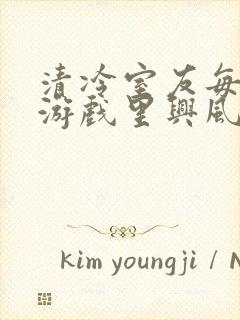 清冷室友每
游戏里兴风
kim youngji / N